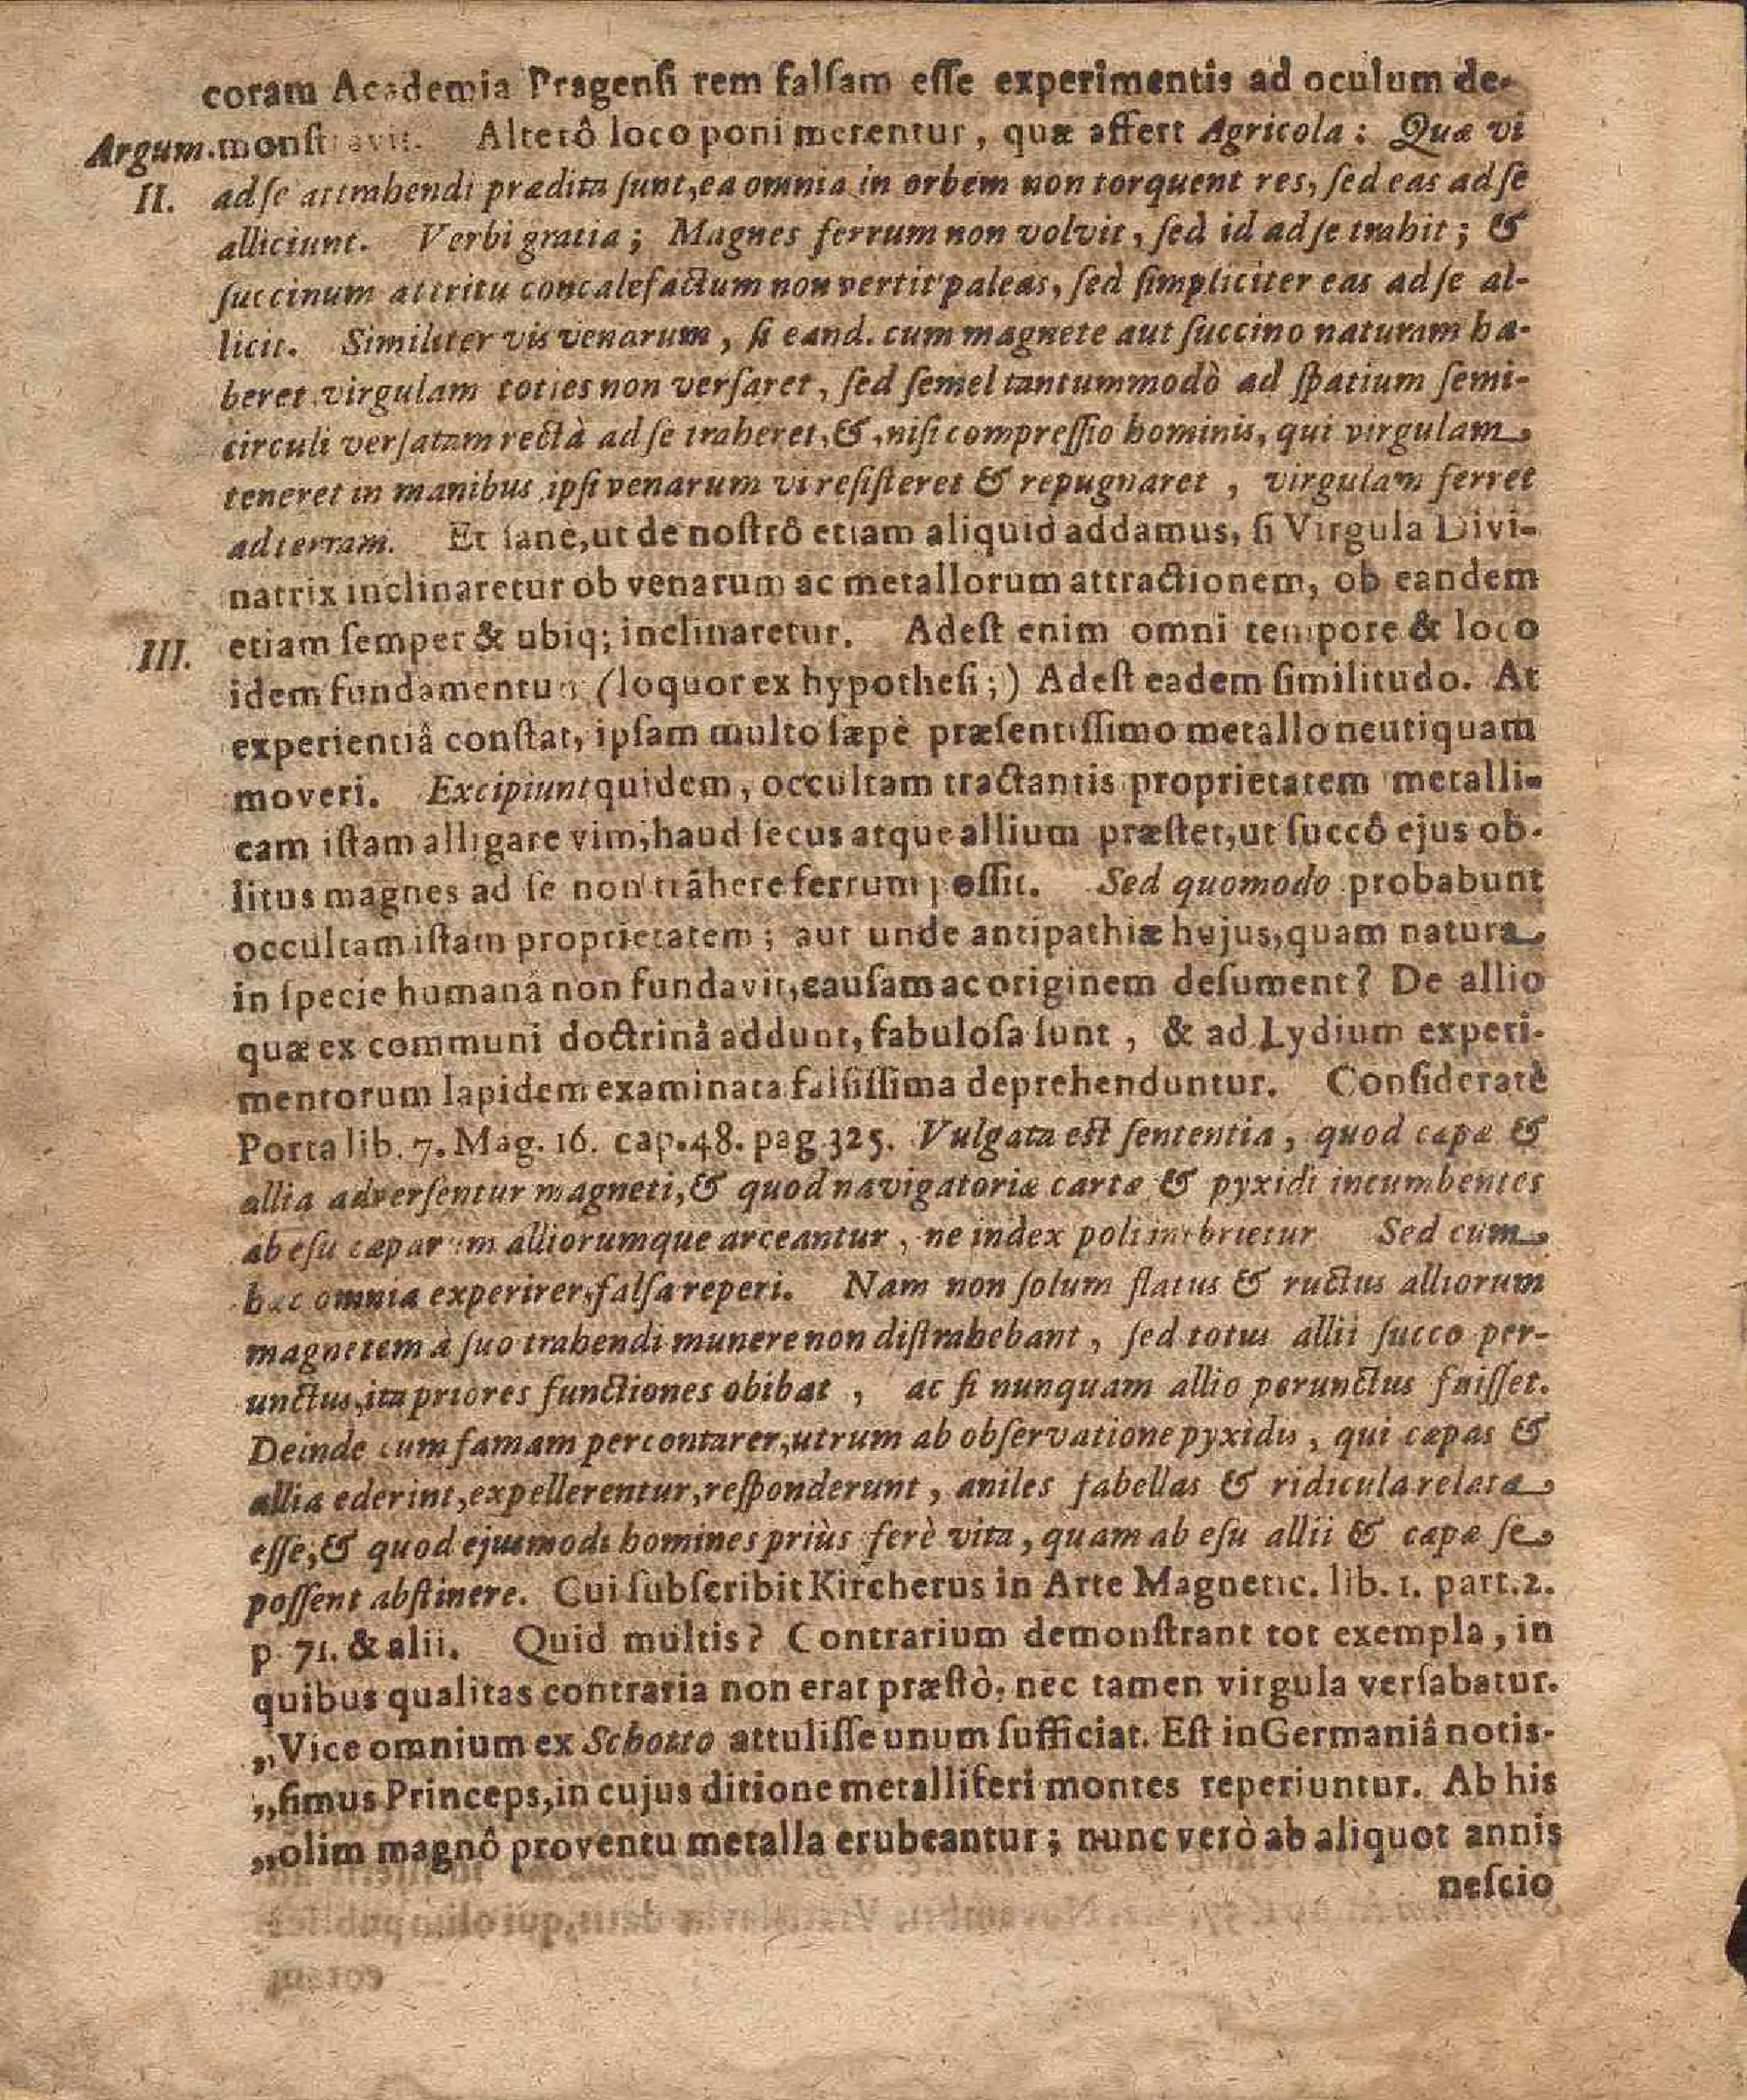 coram Academia Pragensi rem falsam esse experimentis ad oculum de-
Argum. monstravit. Alterô loco poni merentur, quæ affert Agricola: Quæ vi
II. ad se attrahendi prædita sunt, ea omnia in orbem non torquent res, sed eas ad se
alliciunt. Verbi gratia; Magnes ferrum non volvit, sed id ad se trahit; &
succinum attritu concalefactum non vertit paleas, sed simpliciter eas ad se al-
licit. Similiter vis venarum, si eand. cum magnete aut succino naturam ha-
beret virgulam toties non versaret, sed semel tantummodò ad spatium semi-
circuli versatam rectà ad se traheret, &, nisi compressio hominis, qui virgulam
teneret in manibus ipsi venarum vi resisteret & repugnaret, virgulam ferret
ad terram. Et sane, ut de nostrô etiam aliquid addamus, si Virgula Divi-
natrix inclinaretur ob venarum ac metallorum attractionem, ob eandem
III. etiam semper & ubiq; inclinaretur. Adest enim omni tempore & loco
idem fundamentum (loquor ex hypothesi;) Adest eadem similitudo. At
experientiâ constat, ipsam multo sæpè præsentissimo metallo neutiquam
moveri. Excipiunt quidem, occultam tractantis proprietatem metalli-
cam istam alligare vim, haud secus atque allium præstet, ut succô ejus ob-
litus magnes ad se non trahere ferrum possit. Sed quomodo probabunt
occultam istam proprietatem; aut unde antipathiæ hujus, quam natura
in specie humanâ non fundavit, causam ac originem desument? De allio
quæ ex communi doctrinâ addunt, fabulosa sunt, & ad Lydium experi-
mentorum lapidem examinata falsissima deprehenduntur. Consideratè
Porta lib. 7. Mag. 16. cap. 48. pag 325. Vulgata est sententia, quod cæpæ &
allia adversentur magneti, & quod navigatoriæ cartæ & pyxidi incumbentes
ab esu cæparum alliorumque arceantur, ne index poli inebrietur Sed cum
hæc omnia experirer, falsa reperi. Nam non solum flatus & ructus alliorum
magnetem a suo trahendi munere non distrahebant, sed totus allii succo per-
unctus, ita priores functiones obibat, ac si nunquam allio perunctus fuisset.
Deinde cum famam percontarer, utrum ab observatione pyxidis, qui cæpas &
allia ederint, expellerentur, responderunt, aniles fabellas & ridicula relata
esse, & quod ejusmodi homines priùs ferè vita, quam ab esu allii & cæpæ se
possent abstinere. Cui subscribit Kircherus in Arte Magnetic. lib. 1. part. 2.
p. 71. & alii. Quid multis? Contrarium demonstrant tot exempla, in
quibus qualitas contraria non erat præstò, nec tamen virgula versabatur.
„Vice omnium ex Schotto attulisse unum sufficiat. Est in Germaniâ notis-
„simus Princeps, in cujus ditione metalliferi montes reperiuntur. Ab his
„olim magnô proventu metalla erubeantur; nunc verò ab aliquot annis
nescio